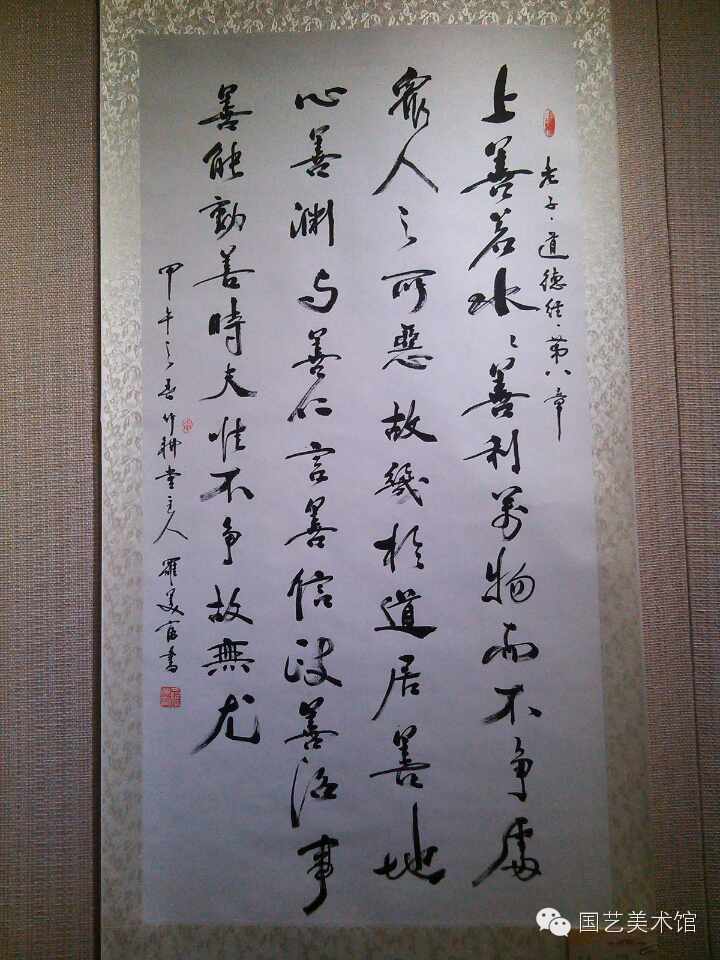 老子·道德经·第八章
上善若水〻善利萬物而不争處
眾人之所惡故幾於道居善地
心善渊与善仁言善信政善治事
善能動善時夫惟不争故無尤
甲午之春竹耕堂主人 羅美書
国艺美术馆